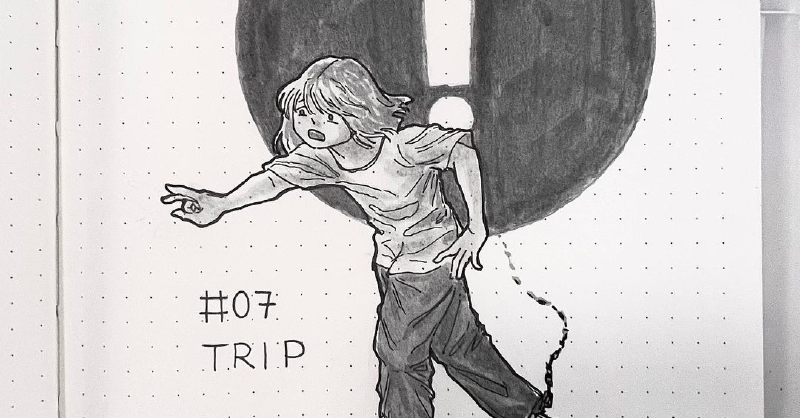 !
#07
TRIP